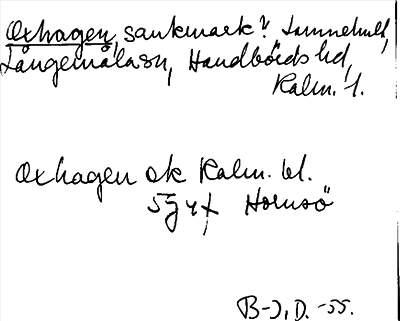 Oxhagen, sankmark?, Lommehult,
Långemåla sn, Handbörds hd,
Kalm. l.
Oxhagen ek Kalm. bl.
5g4f Hornsö
B-J, D. -55.